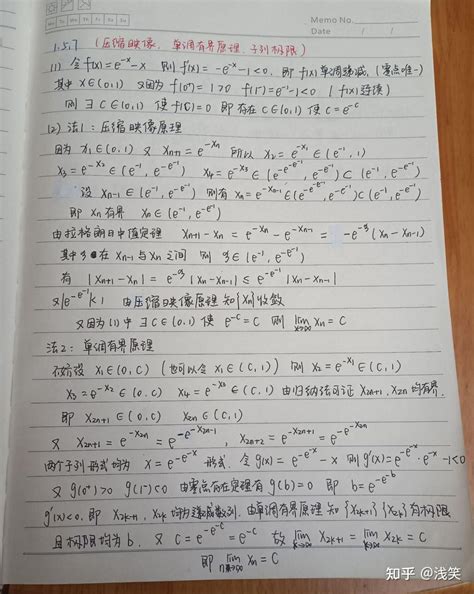 Memo No.
Mo Tu We Th Fr Sa Su
Date / /
1.5.7 (压缩映像, 单调有界原理, 子列极限)
(1) 令 f(x)=e^{-x}-x 则 f'(x)=-e^{-x}-1<0, 即 f(x)单调递减, (零点唯一)
其中 x∈(0,1) 又因为 f(0⁺)=1>0 f(1⁻)=e^{-1}-1<0 (f(x)连续)
则 ∃ C∈(0,1) 使 f(C)=0 即存在 C∈(0,1) 使 C=e^{-C}
(2) 法1: 压缩映像原理
因为 x₁∈(0,1) 又 x_{n+1}=e^{-x_n} 所以 x₂=e^{-x₁}∈(e^{-1},1)
x₃=e^{-x₂}∈(e^{-1},e^{-e^{-1}}) x₄=e^{-x₃}∈(e^{-e^{-e^{-1}}},e^{-e^{-1}})⊂(e^{-1},e^{-e^{-1}})
设 x_{n-1}∈(e^{-1},e^{-e^{-1}}) 则有 x_n=e^{-x_{n-1}}∈(e^{-e^{-e^{-1}}},e^{-e^{-1}})⊂(e^{-1},e^{-e^{-1}})
即 x_n有界 x_n∈(e^{-1},e^{-e^{-1}})
由拉格朗日中值定理 x_{n+1}-x_n=e^{-x_n}-e^{-x_{n-1}}=-e^{-ξ}(x_n-x_{n-1})
其中 ξ 在 x_{n-1}与x_n之间 则 ξ∈(e^{-1},e^{-e^{-1}})
有 |x_{n+1}-x_n|=e^{-ξ}|x_n-x_{n-1}|≤e^{-e^{-1}}|x_n-x_{n-1}|
又|e^{-e^{-1}}|<1 由压缩映像原理知{x_n}收敛
又因为(1)中 ∃ C∈(0,1) 使 e^{-C}=C 则 lim x_n=C
法2: 单调有界原理
不妨设 x₁∈(0,C) (也可以令 x₁∈(C,1)) 则 x₂=e^{-x₁}∈(C,1)
x₃=e^{-x₂}∈(0,C) x₄=e^{-x₃}∈(C,1) 由归纳法可证 x_{2n+1},x_{2n}均有界.
即 x_{2n+1}∈(0,C) x_{2n}∈(C,1)
又 x_{2n+1}=e^{-x_{2n}}=e^{-e^{-x_{2n-1}}}, x_{2n+2}=e^{-x_{2n+1}}=e^{-e^{-x_{2n}}}
两个子列形式均为 x=e^{-e^{-x}} 形式. 令 g(x)=e^{-e^{-x}}-x 则 g'(x)=e^{-e^{-x}}·e^{-x}-1<0
又 g(0⁺)>0 g(1⁻)<0 由零点存在定理有 g(b)=0 即 b=e^{-e^{-b}}
g'(x)<0, 即 x_{2k+1},x_{2k}均为递减数列. 由单调有界原理知{x_{2k+1}}{x_{2k}}有极限
且极限均为b. 又 C=e^{-e^{-C}}=e^{-C}=C 故 lim x_{2k+1}=lim x_{2k}=C
即 lim x_n=C
知乎 @浅笑